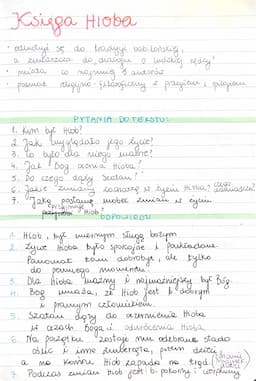 Księga Hioba
• odwołuje się do tradycji babilońskiej,
a zwłaszcza do dialogu o ludzkiej nędzy
• miała co najmniej 3 autorów
• poemat religijno-filozoficzny z prologiem i epilogiem
PYTANIA DO TEKSTU:
1. Kim był Hiob?
2. Jak wyglądało jego życie?
3. Co było dla niego ważne?
4. Jak Bóg ocenia Hioba?
5. Do czego dąży Szatan?
6. Jakie zmiany zachodzą w życiu Hioba?
7. Jaką postawę wobec zmian w życiu
przyjmuje Hiob?
ODPOWIEDZI
1. Hiob, był wiernym sługą bożym
2. Życie Hioba było spokojne i
Panował tam dobrobyt, ale tylko
do pewnego momentu.
3. Dla Hioba ważny i najważniejszy był Bóg.
4. Bóg uważa, że Hiob jest b. dobrym
i prawym człowiekiem.
5. Szatan dąży do oczernienia Hioba
w oczach Boga i odwrócenia Hioba
6. Na początku zostaje mu odebrane stado
osłic i inne zwierzęta, potem dzieci,
a na koniec Hiob zapada na trąd
7. Podczas zmian Hiob jest b. pokorny i cierpliwy